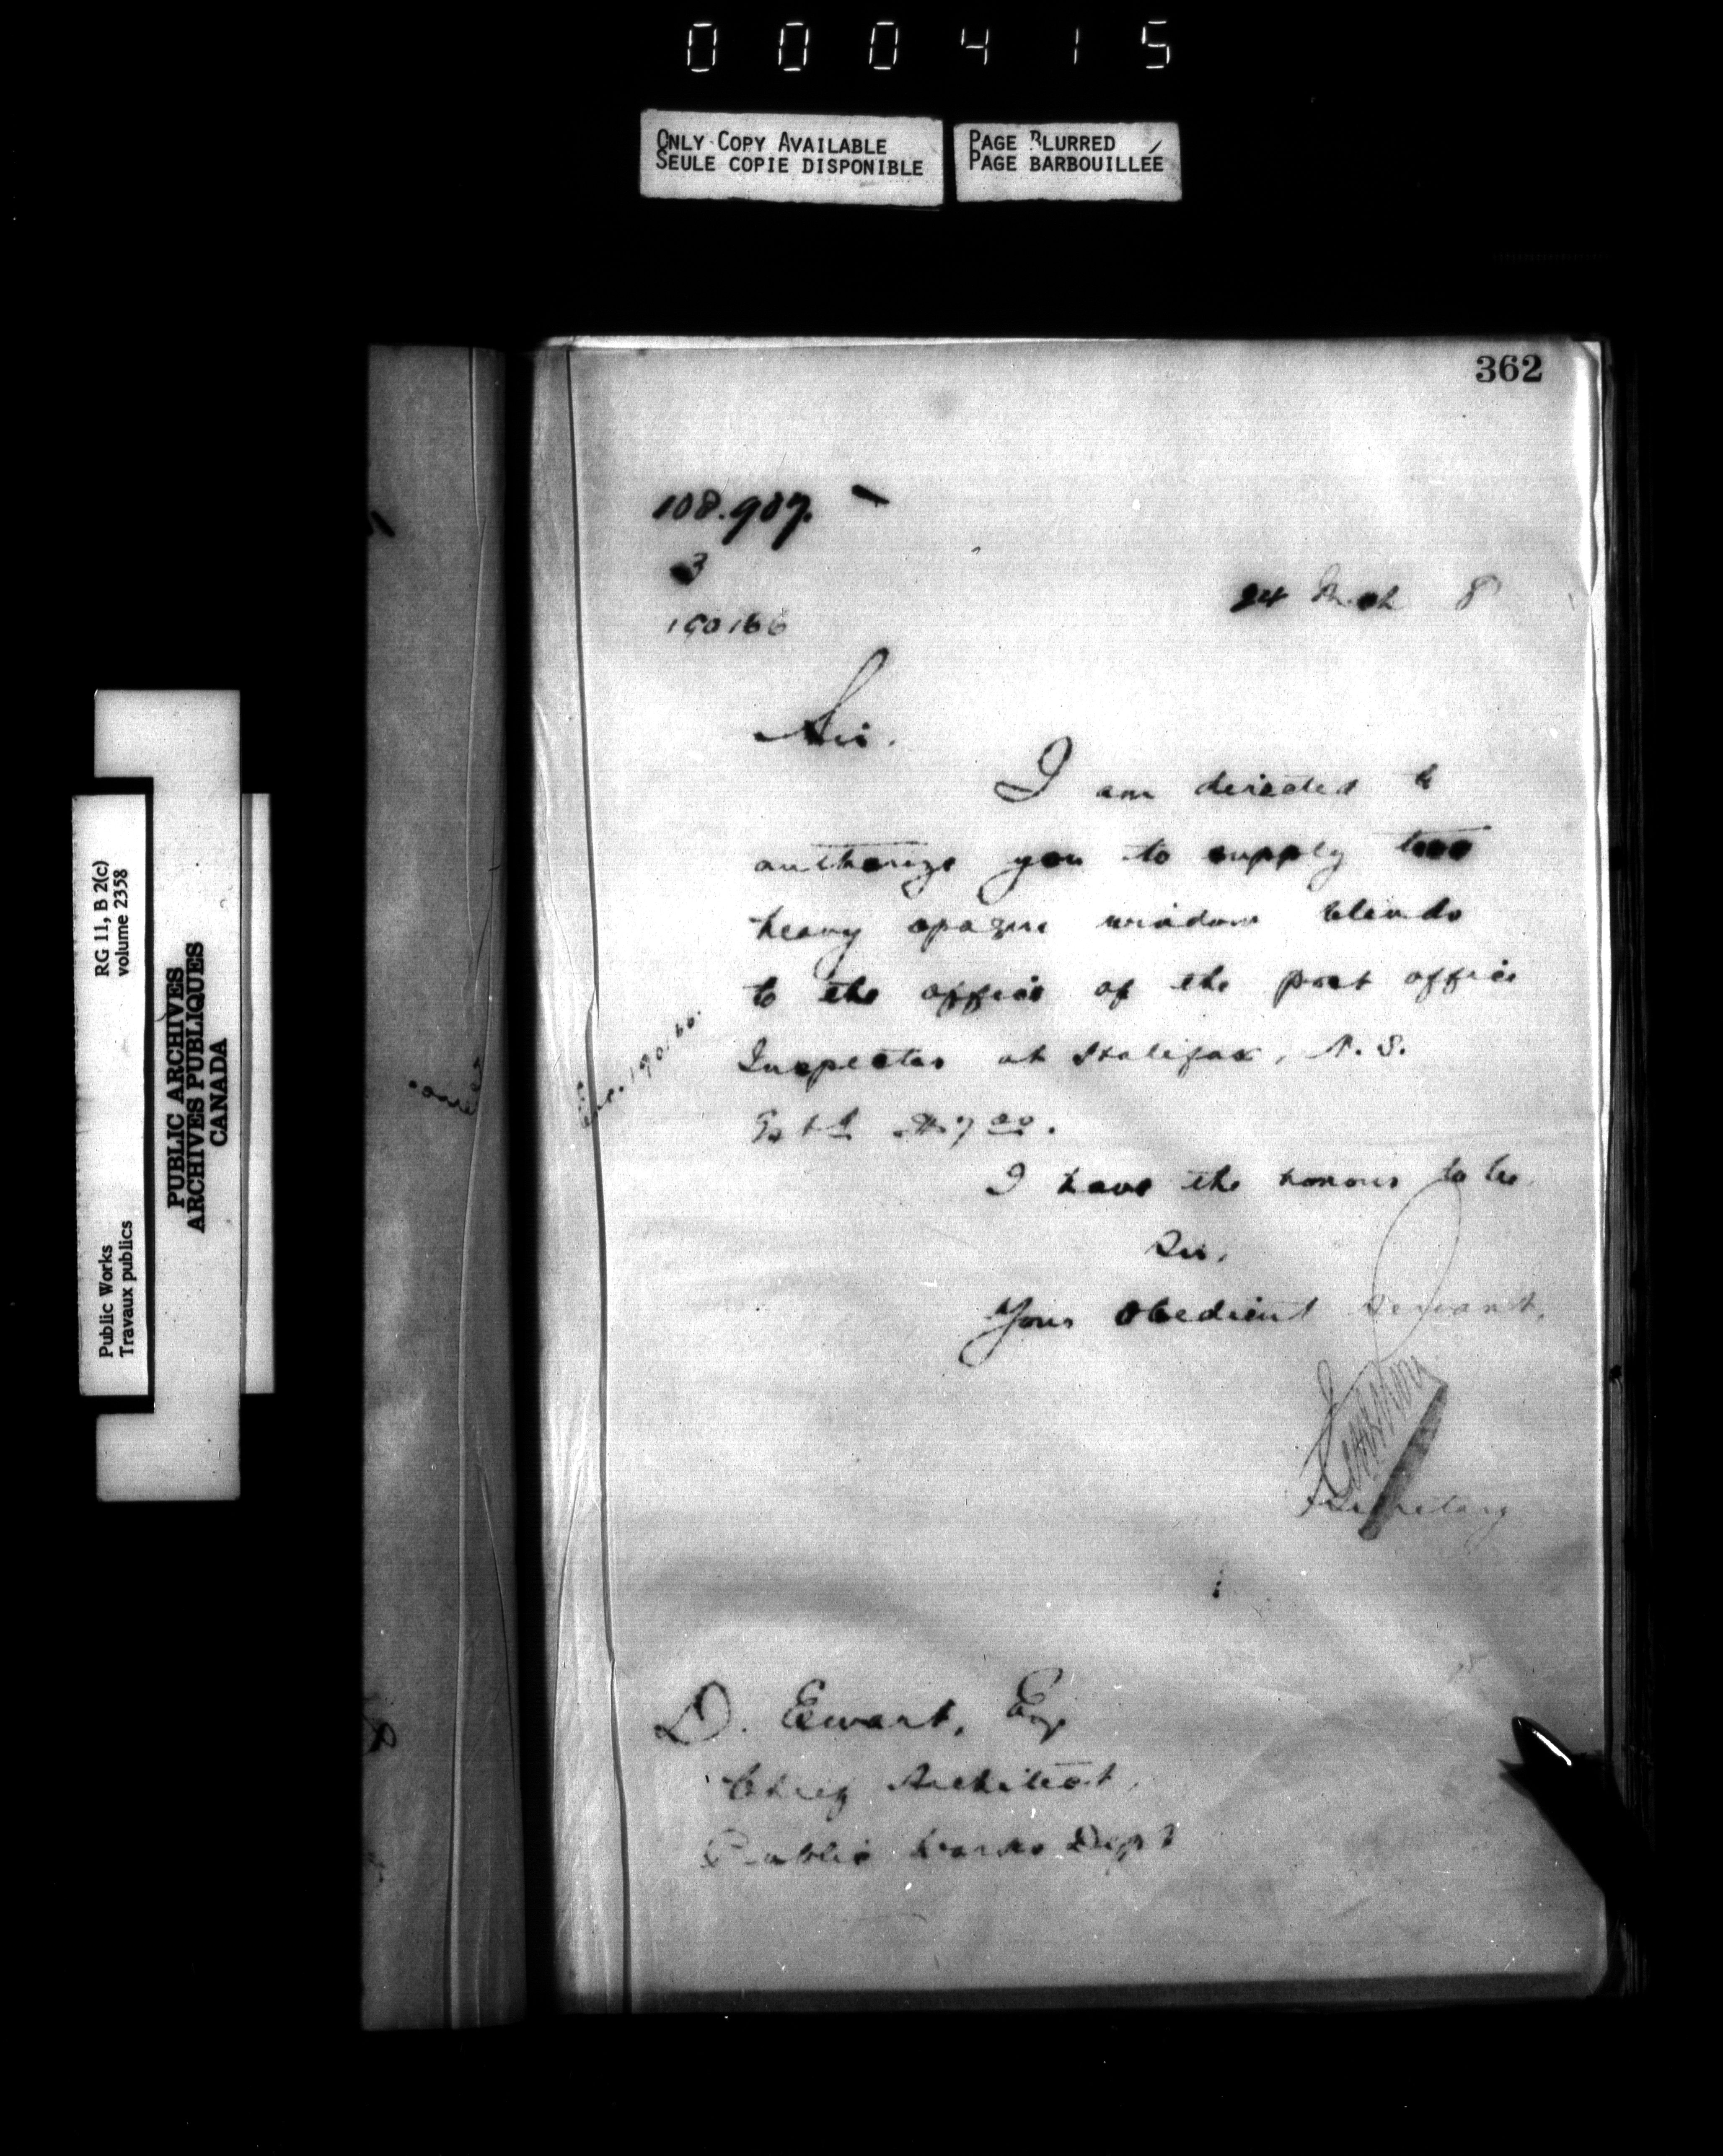 000415
ONLY COPY AVAILABLE
SEULE COPIE DISPONIBLE
PAGE BLURRED
PAGE BARBOUILLÉE
Public Works
Travaux publics
RG 11, B 2(c)
volume 2358
PUBLIC ARCHIVES
ARCHIVES PUBLIQUES
CANADA
362
108.987.
3
190166
24 Mch 8
Sir.
I am directed to
authorize you to supply two
heavy opaque window blinds
to the office of the post office
Inspector at Halifax, N.S.
Est'd $7.00.
190166.
I have the honour to be
Sir,
Your obedient servant,
Secretary
D. Ewart, Esq
Chief Architect,
Public Works Dept